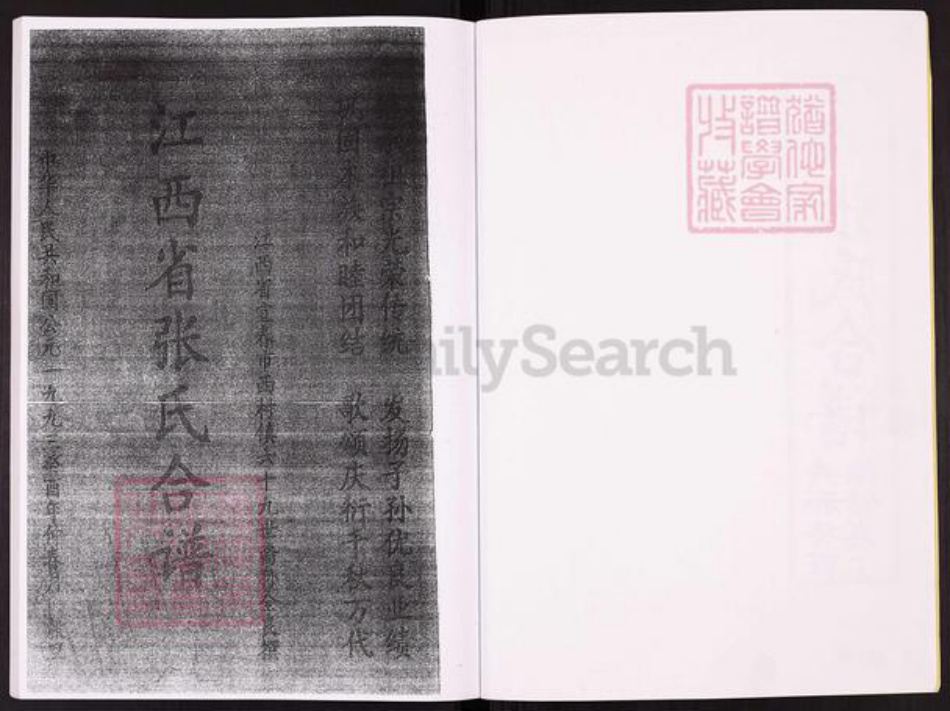 宗光荣传统 发扬子孙优良业绩
巩固本族和睦团结 歌颂庆衍千秋万代
江西省宜春市西村镇六十九世裔孙
江西省张氏合谱
中华人民共和国公元一九九三癸酉年仲春月
猶他家
譜學會
收藏
FamilySearch